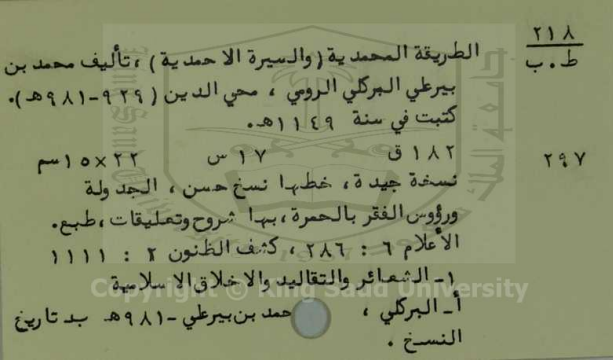 ٢١٨
ط . ب
الطريقة المحمدية (والسيرة الاحمدية) ، تأليف محمد بن
بيرعلي البركلي الرومي ، محي الدين (٩٢٩-٩٨١هـ).
كتبت في سنة ١١٤٩هـ.
٢٩٧
١٨٢ ق ١٧ س ٢٢×١٥سم
نسخة جيدة ، خطها نسخ حسن ، الجدولة
ورؤوس الفقر بالحمرة ، بها شروح وتعليقات ، طبع.
الأعلام ٦ : ٢٨٦ ، كشف الظنون ٢ : ١١١١
١- الشعائر والتقاليد والاخلاق الاسلامية
أ- البركلي ، حمد بن بيرعلي -٩٨١هـ ب- تاريخ
النسخ .
Copyright © King Saud University